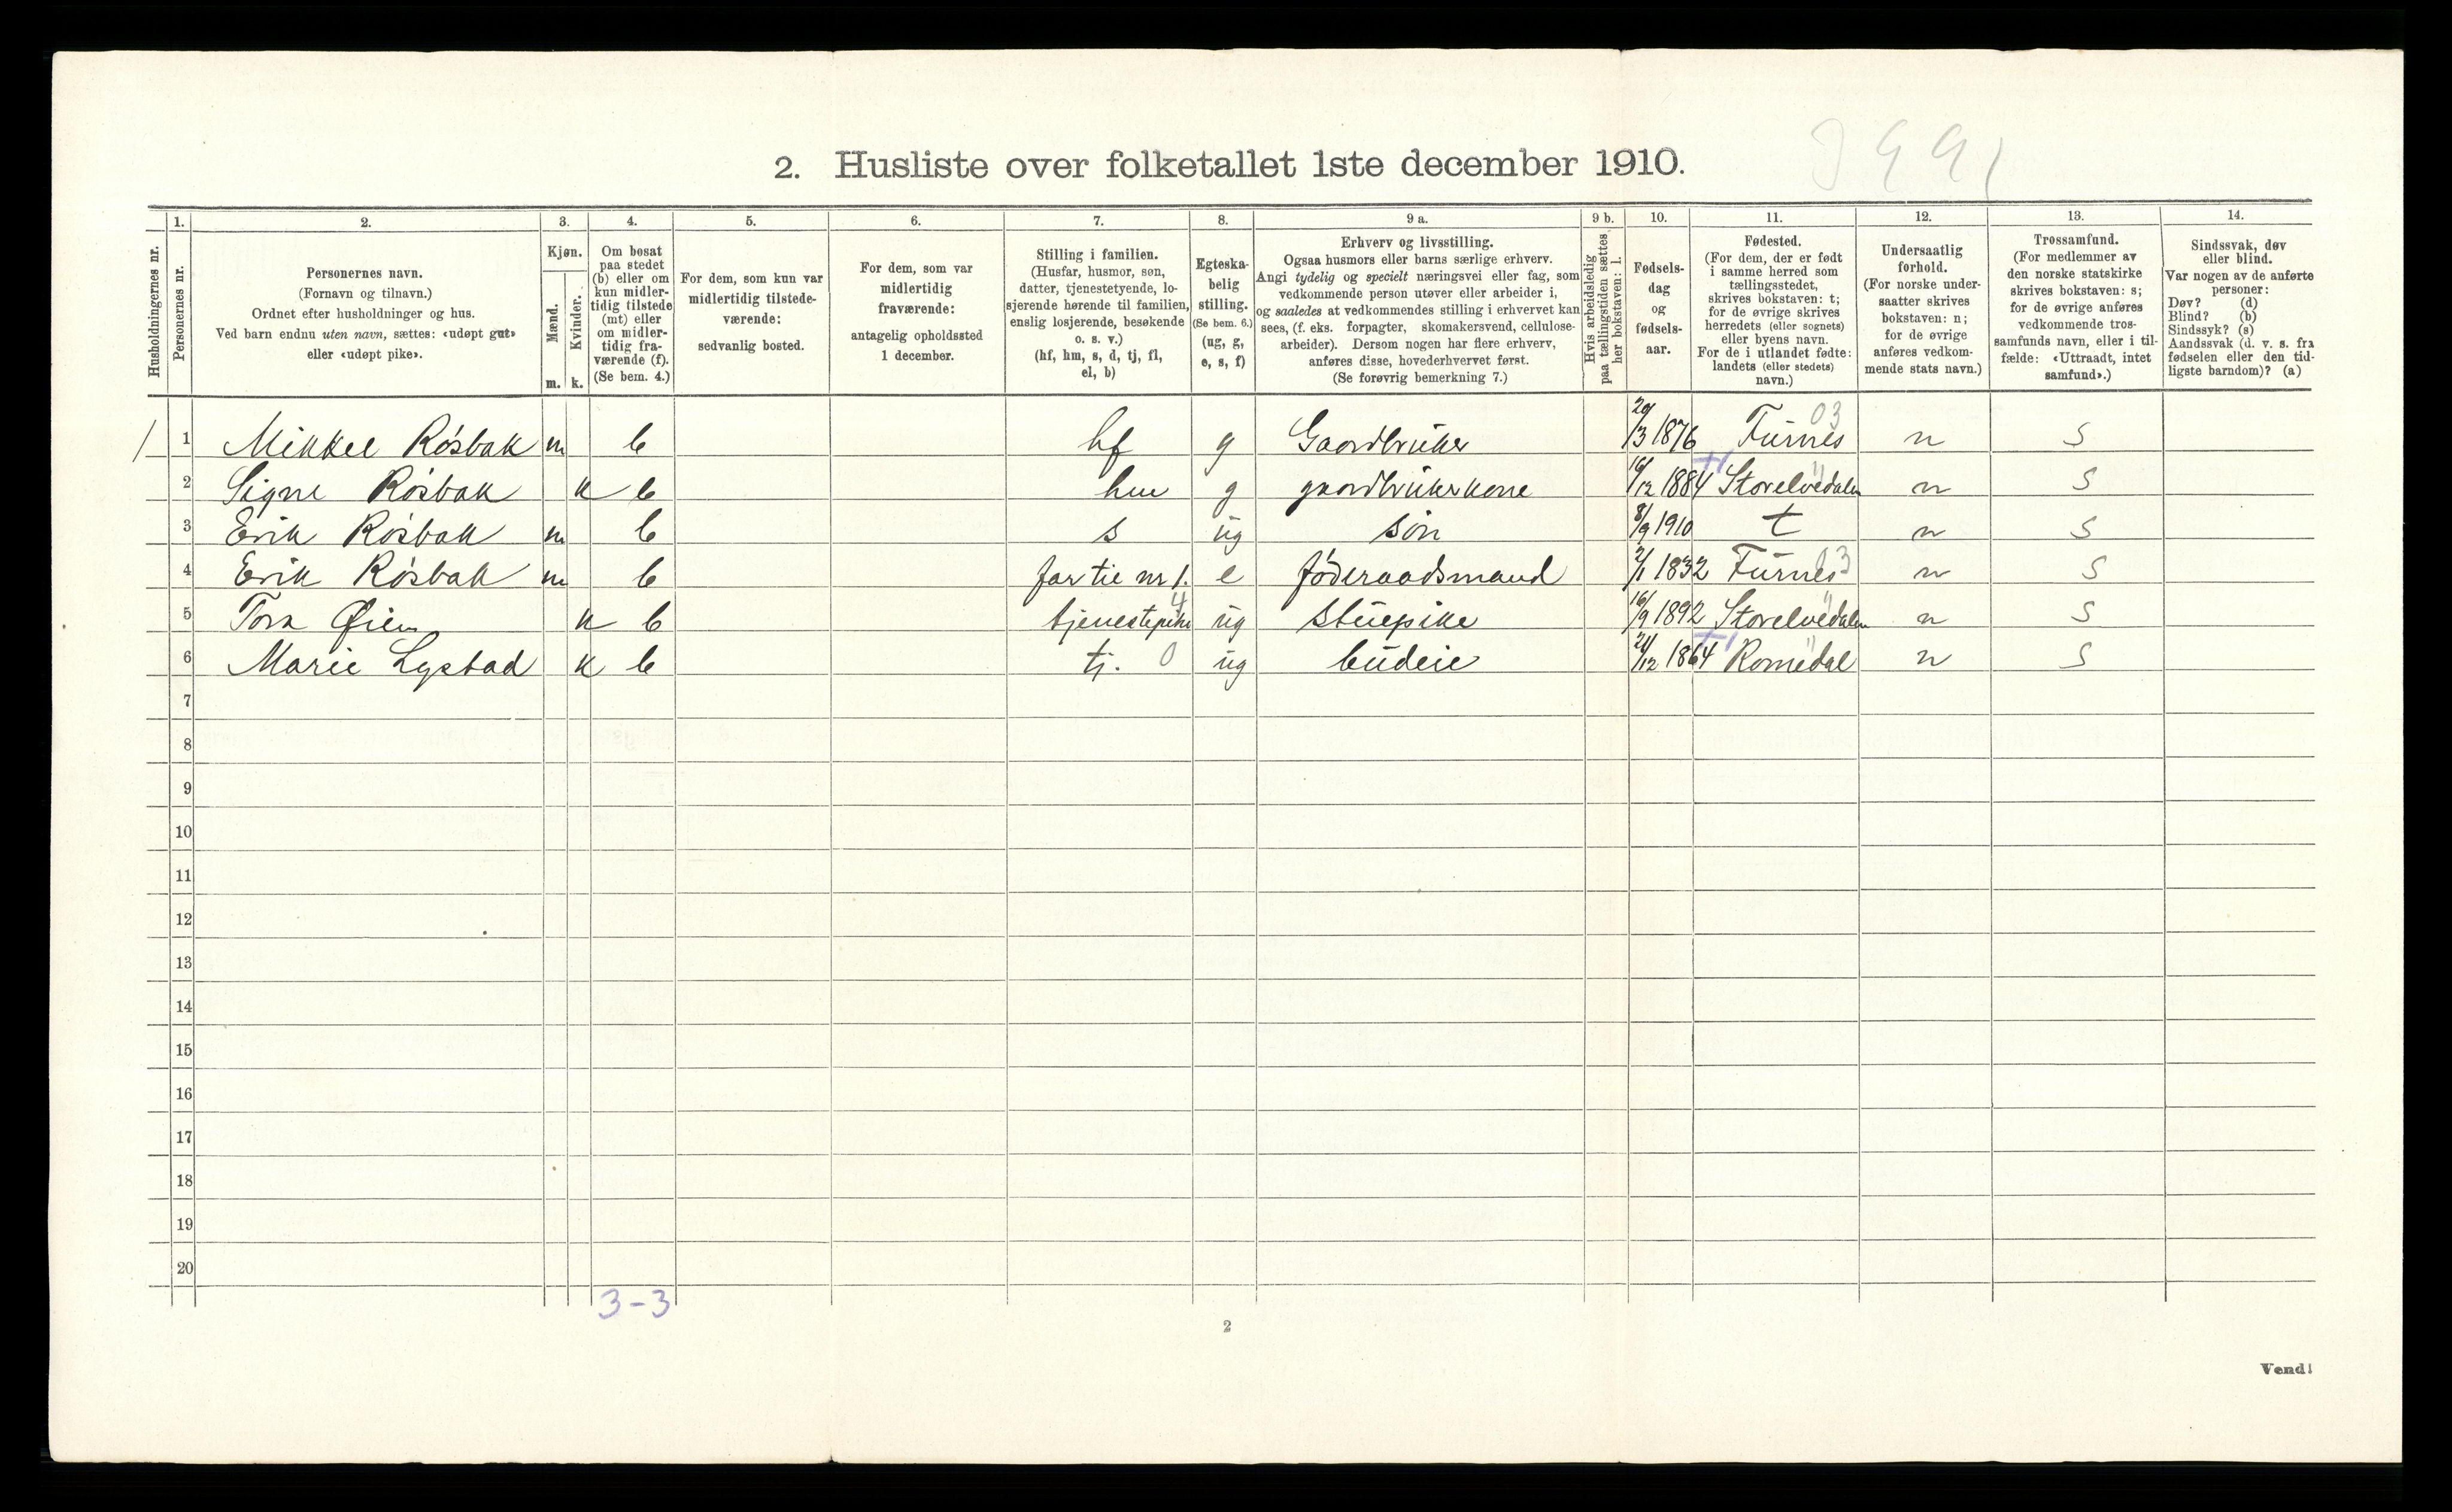 2. Husliste over folketallet 1ste december 1910.
Husholdningernes nr.
1.
Personernes nr.
2.
Personernes navn.
(Fornavn og tilnavn.)
Ordnet efter husholdninger og hus.
Ved barn endnu uten navn, sættes: «udøpt gut»
eller «udøpt pike».
3.
Kjøn.
Mænd.
Kvinder.
m. k.
4.
Om bosat
paa stedet
(b) eller om
kun midler-
tidig tilstede
(mt) eller
om midler-
tidig fra-
værende (f).
(Se bem. 4.)
5.
For dem, som kun var
midlertidig tilstede-
værende:
sedvanlig bosted.
6.
For dem, som var
midlertidig
fraværende:
antagelig opholdssted
1 december.
7.
Stilling i familien.
(Husfar, husmor, søn,
datter, tjenestetyende, lo-
sjerende hørende til familien,
enslig losjerende, besøkende
o. s. v.)
(hf, hm, s, d, tj, fl,
el, b)
8.
Egteska-
belig
stilling.
(Se bem. 6.)
(ug, g,
e, s, f)
9 a.
Erhverv og livsstilling.
Ogsaa husmors eller barns særlige erhverv.
Angi tydelig og specielt næringsvei eller fag, som
vedkommende person utøver eller arbeider i,
og saaledes at vedkommendes stilling i erhvervet kan
sees, (f. eks. forpagter, skomakersvend, cellulose-
arbeider). Dersom nogen har flere erhverv,
anføres disse, hovederhvervet først.
(Se forøvrig bemerkning 7.)
9 b.
Hvis arbeidsledig
paa tællingstiden sættes
her bokstaven: l.
10.
Fødsels-
dag
og
fødsels-
aar.
11.
Fødested.
(For dem, der er født
i samme herred som
tællingsstedet,
skrives bokstaven: t;
for de øvrige skrives
herredets (eller sognets)
eller byens navn.
For de i utlandet fødte:
landets (eller stedets)
navn.)
12.
Undersaatlig
forhold.
(For norske under-
saatter skrives
bokstaven: n;
for de øvrige
anføres vedkom-
mende stats navn.)
13.
Trossamfund.
(For medlemmer av
den norske statskirke
skrives bokstaven: s;
for de øvrige anføres
vedkommende tros-
samfunds navn, eller i til-
fælde: «Uttraadt, intet
samfund».)
14.
Sindssvak, døv
eller blind.
Var nogen av de anførte
personer:
Døv? (d)
Blind? (b)
Sindssyk? (s)
Aandssvak (d. v. s. fra
fødselen eller den tid-
ligste barndom)? (a)
1 1 Mikkel Rösbak m b hf g Gaardbruker 29/3 1876 Furnes 03 n s
2 Signe Rösbak k b hm g gaardbrukerkone 16/12 1884 Storelvedalen n s
3 Erik Rösbak m b s ug sön 8/9 1910 t n s
4 Erik Rösbak m b far til nr 1. e föderaadsmand 2/1 1832 Furnes 03 n s
5 Tora Øien k b tjenestepike 4 ug stuepike 16/9 1892 Storelvedalen n s
6 Marie Lystad k b tj. 0 ug budeie 21/12 1864 Romedal n s
7
8
9
10
11
12
13
14
15
16
17
18
19
20
3-3
2
Vend!